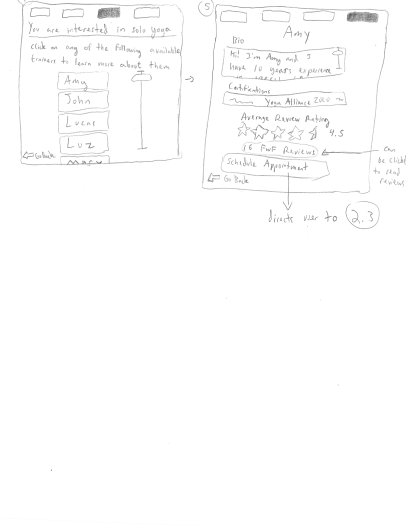 You are interested in solo yoga
Click on any of the following available
trainers to learn more about them
Amy
John
Lucas
Luz
Go Back
5
Amy
Bio
Hi! I'm Amy and I
have 10 years experience
Certifications
Yoga Alliance 200
Average Review Rating
4.5
16 FWF Reviews
can
be click
to read
reviews
Schedule Appointment
Go Back
directs user to 2.3